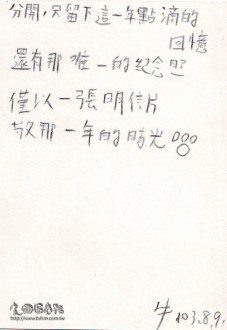 分開，只留下這一年點滴的
回憶
還有那唯一的紀念照
僅以一張明信片
敬那一年的時光
http://www.kshm.com.tw
牛 103.8.9.